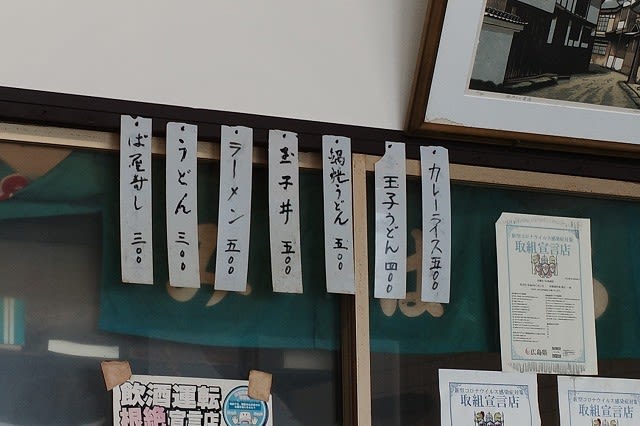 カレーライス五〇〇
玉子うどん 四〇〇
鍋焼うどん 五〇〇
玉子丼 五〇〇
ラーメン 五〇〇
うどん 三〇〇
ば屋寿し 三〇〇
は
新型コロナウイルス感染症対策
取組宣言店
広島県
新型コロナウイルス感染症対策
取組宣言店
新型コロナウイルス感染症対策
取組宣言店
飲酒運転
根絶宣言店